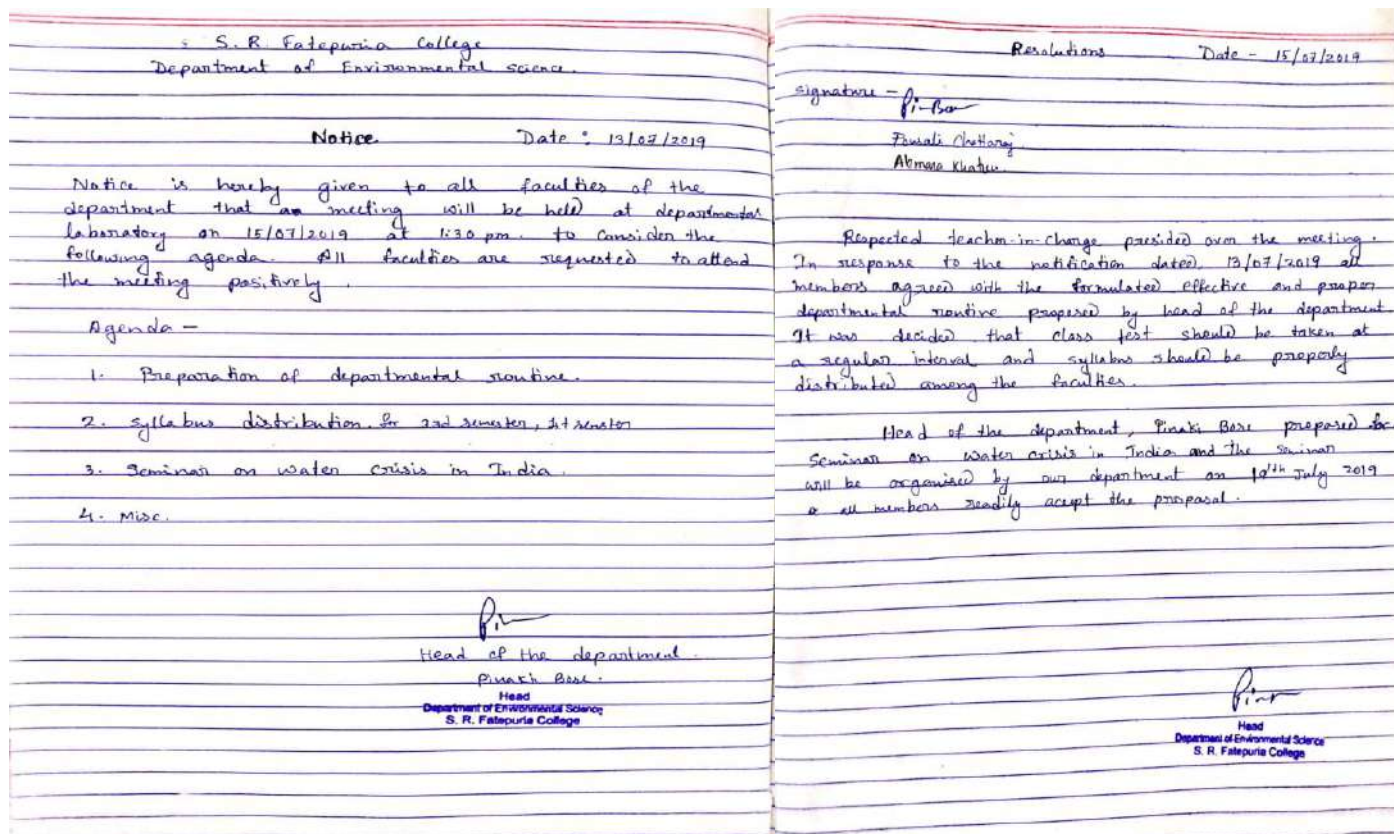 S. R. Fatepuria College
Department of Environmental science.
Notice Date : 13/07/2019
Notice is hereby given to all faculties of the
department that an meeting will be held at departmental
laboratory on 15/07/2019 at 1:30 pm. to consider the
following agenda. All faculties are requested to attend
the meeting positively.
Agenda -
1. Preparation of departmental routine.
2. Syllabus distribution for 2nd semester, 1st
3. Seminar on water crisis in India.
4. Misc.
Head of the department.
Pinaki Bose.
Head
Department of Environmental Science
S. R. Fatepuria College
Resolutions Date - 15/07/2019
Signature -
Pousali Chattaraj
Khatun
Respected teacher-in-charge presided over the meeting.
In response to the notification dated, 13/07/2019 all
members agreed with the formulated effective and proper
departmental routine proposed by head of the department.
It was decided that class test should be taken at
a regular interval and syllabus should be properly
distributed among the faculties.
Head of the department, Pinaki Bose proposed for
Seminar on water crisis in India and the seminar
will be organised by our department on July 2019
all members readily acept the proposal.
Head
Department of Environmental Science
S. R. Fatepuria College